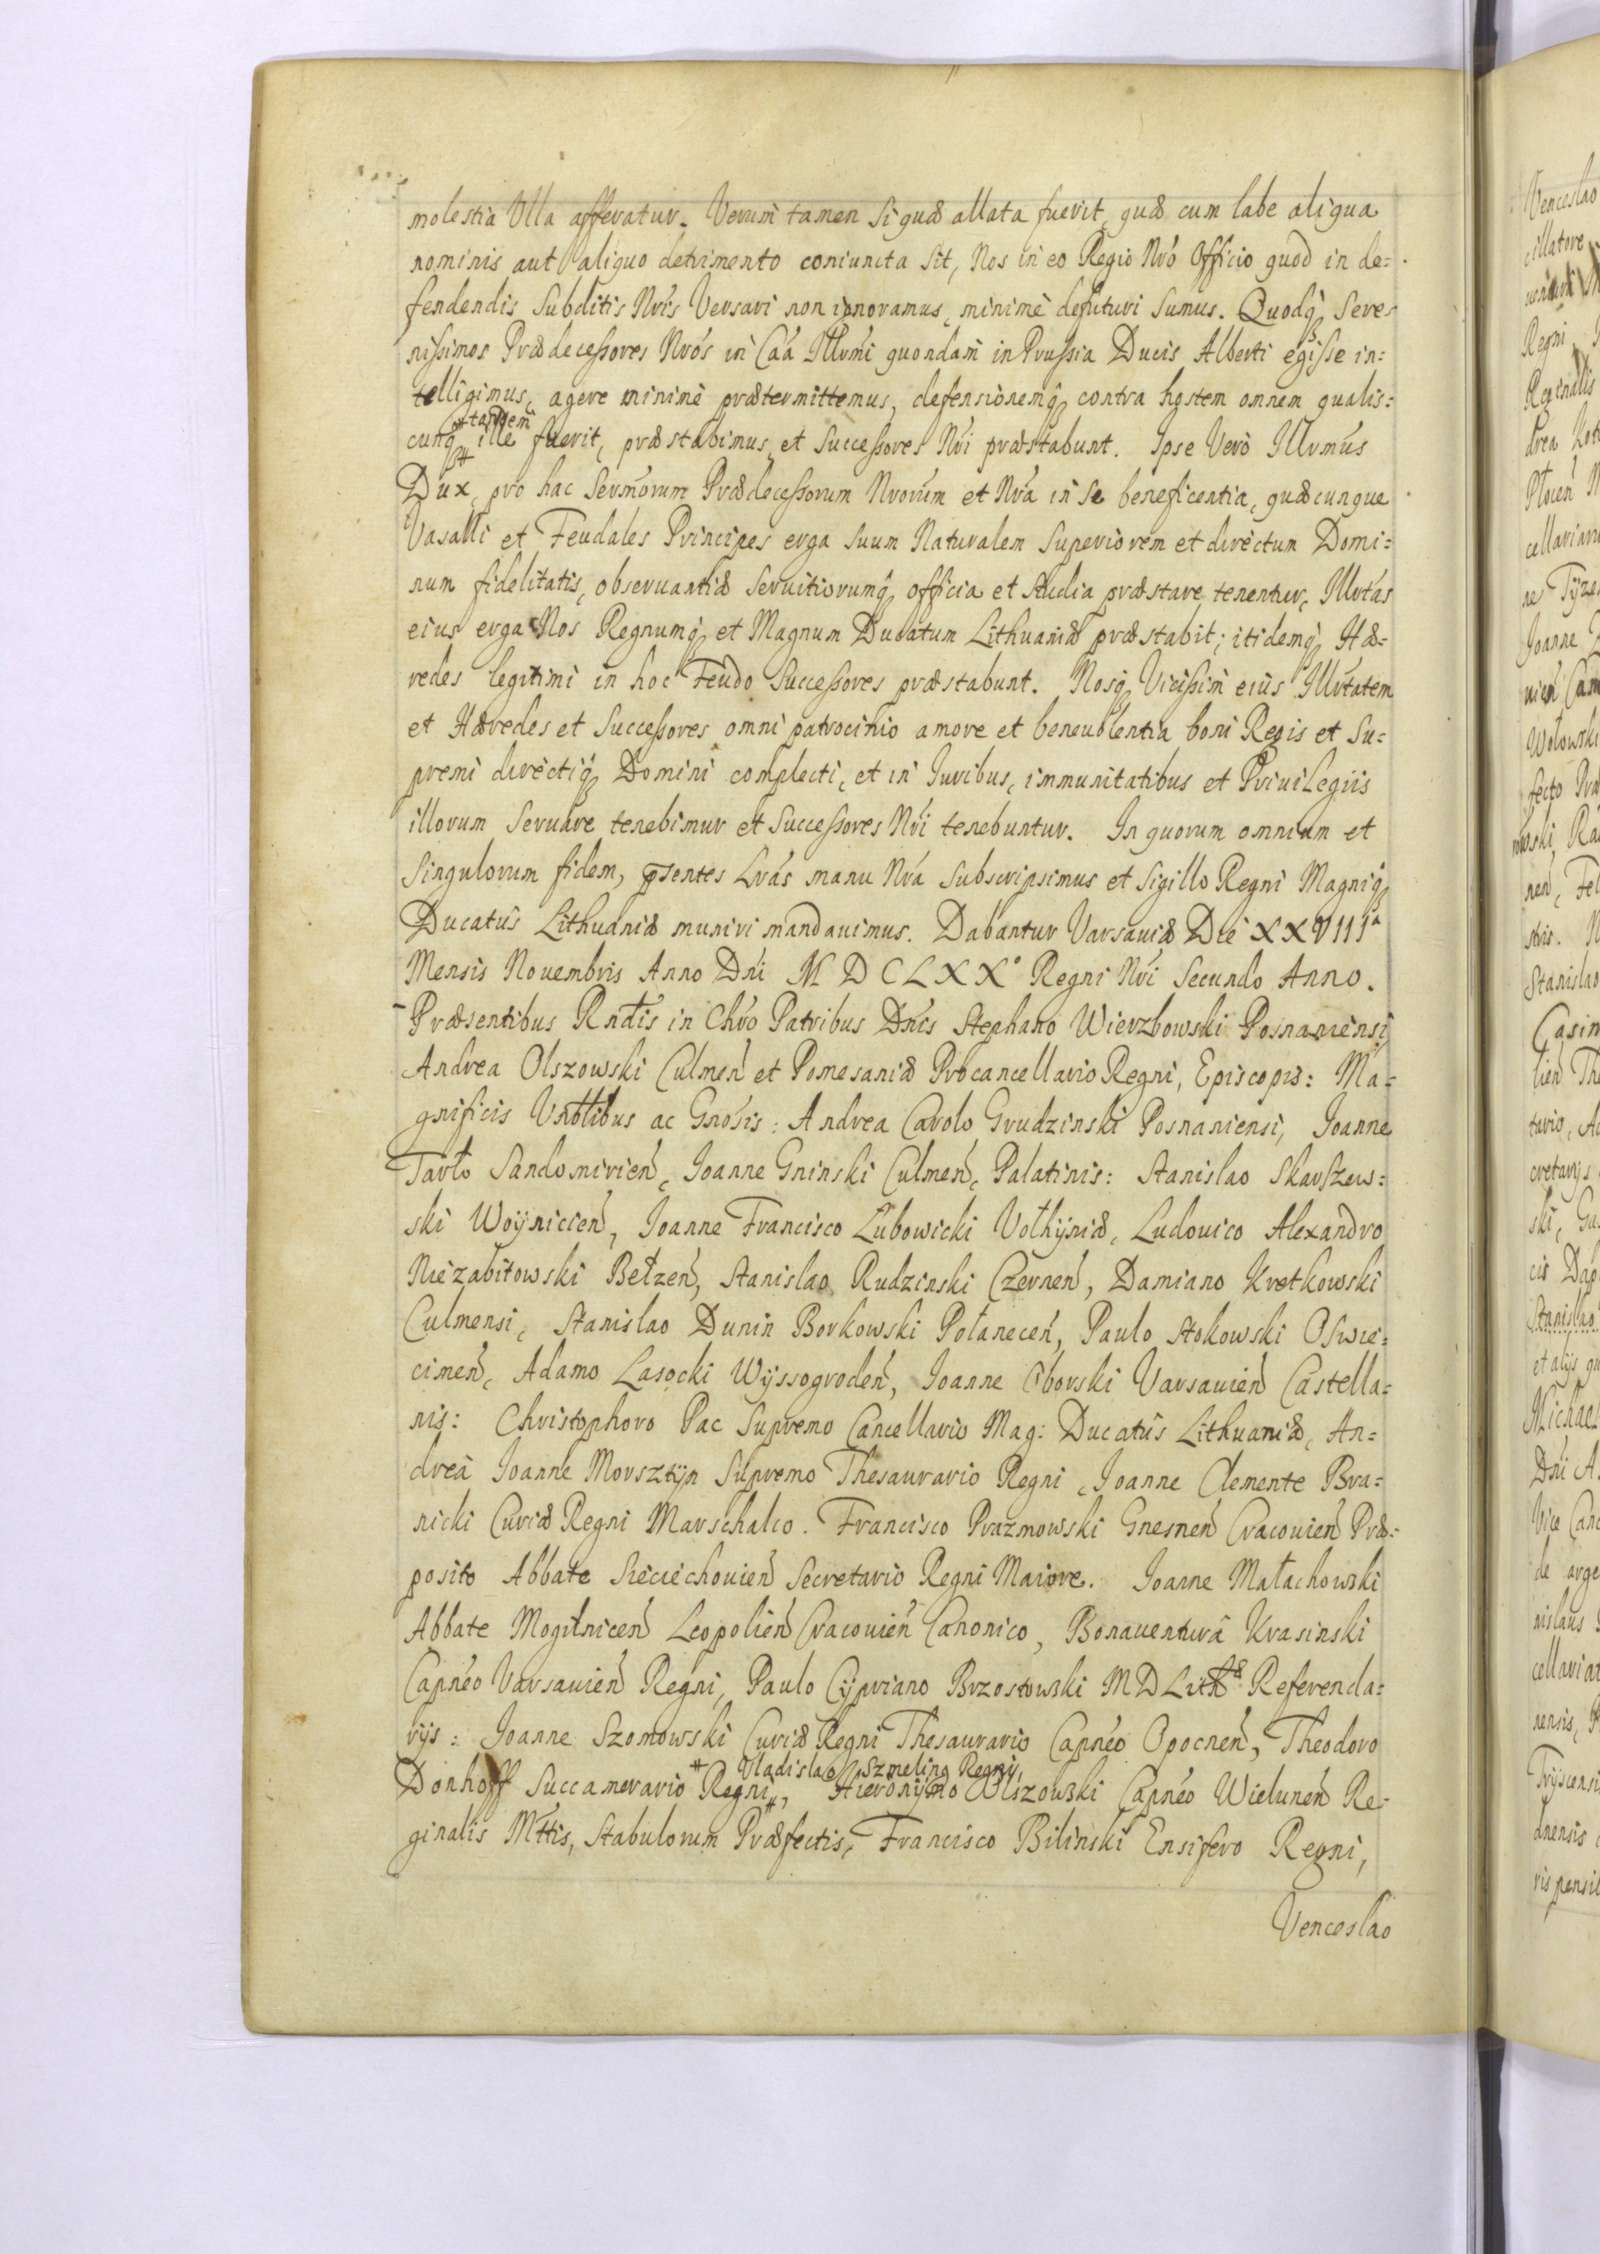 molestia Ulla afferatur. Verum tamen si quæ allata fuerit, quæ cum labe aliqua
nominis aut aliquo detrimento coniuncta sit, Nos in eo Regio Nró Officio quod in de=
fendendis Subditis Nrís Versari non ignoramus, minimè defuturi sumus. Quodq̃ Sere-
nissimos Prædecessores Nrós in Caá Illrmi quondam in Prussia Ducis Alberti egisse in=
telligimus, agere minimè prætermittemus, defensionemq̃ contra hostem omnem qualis=
tandem
cunq̃ # ille fuerit, præstabimus, et Successores Nrí præstabunt. Ipse Verò Illrmus
Dux, pro hac Sermorum Prædecessorum Nrorum et Nrá in se beneficentia, quæcunque
Vasalli et Feudales Principes erga suum Naturalem Superiorem et directum Domi=
num fidelitatis, observantiæ servitiorumq̃ officia et Studia præstare tenentur, Illrtás
eius erga Nos Regnumq̃ et Magnum Ducatum Lithuaniæ præstabit; itidemq̃ Hæ=
redes legitimi in hoc Feudo Successores præstabunt. Nosq̃ Vicissim eius Illrtatem
et Hæredes et Successores omni patrocinio amore et beneuolentia boni Regis et Su=
premi directiq̃ Domini complecti, et in Iuribus, immunitatibus et Priuilegiis
illorum Seruare tenebimur et Successores Nrí tenebuntur. In quorum omnium et
Singulorum fidem, p̃sentes Lrás manu Nrá Subscripsimus et Sigillo Regni Magniq̃
Ducatûs Lithuaniæ muniri mandauimus. Dabantur Varsauiæ Die XXVIIIᵃ
Mensis Nouembris Anno Dni M D C L X X° Regni Nrí Secundo Anno.
Præsentibus Rndis in Chró Patribus Dnis Stephano Wierzbowski Posnaniensi,
Andrea Olszowski Culmeñ et Pomesaniæ Procancellario Regni, Episcopis: Ma=
gnificis Vnbtibus ac Gnosis: Andrea Carolo Grudzinski Posnaniensi, Ioanne
Tarło Sandomirieñ, Ioanne Gninski Culmeñ, Palatinis: Stanislao Skarszew=
ski Woÿnicieñ, Ioanne Francisco Lubowicki Vołhÿniæ, Ludouico Alexandro
Niezabitowski Bełzeñ, Stanislao Rudzinski Czerneñ, Damiano Kretkowski
Culmensi, Stanislao Dunin Borkowski Połaneceñ, Paulo Stokowski Oswie=
cimeñ, Adamo Lasocki Wÿssogrodeñ, Ioanne Oborski Varsauieñ Castella=
nis: Christophoro Pac Supremo Cancellario Mag: Ducatûs Lithuaniæ, An=
dreâ Ioanne Morsztÿn Supremo Thesaurario Regni, Ioanne Clemente Bra=
nicki Curiæ Regni Marschalco. Francisco Prazmowski Gnesneñ Cracouieñ Præ=
posito Abbate Sieciechouieñ Secretario Regni Maiore. Ioanne Małachowski
Abbate Mogilniceñ Leopolieñ Cracouieñ Canonico, Bonauenturâ Krasinski
Capnéo Varsauieñ Regni, Paulo Cÿpriano Brzostowski M D Lith^æ Referenda=
rÿs: Ioanne Szomowski Curiæ Regni Thesaurario Capnéo Opocneñ, Theodoro
# Vladislao Szmeling Regni,
Donhoff Succamerario Regni #, Hieronÿmo Olszowski Capnéo Wieluneñ Re-
ginalis Mttis, Stabulorum Præfectis, Francisco Bilinski Ensifero Regni,
Venceslao